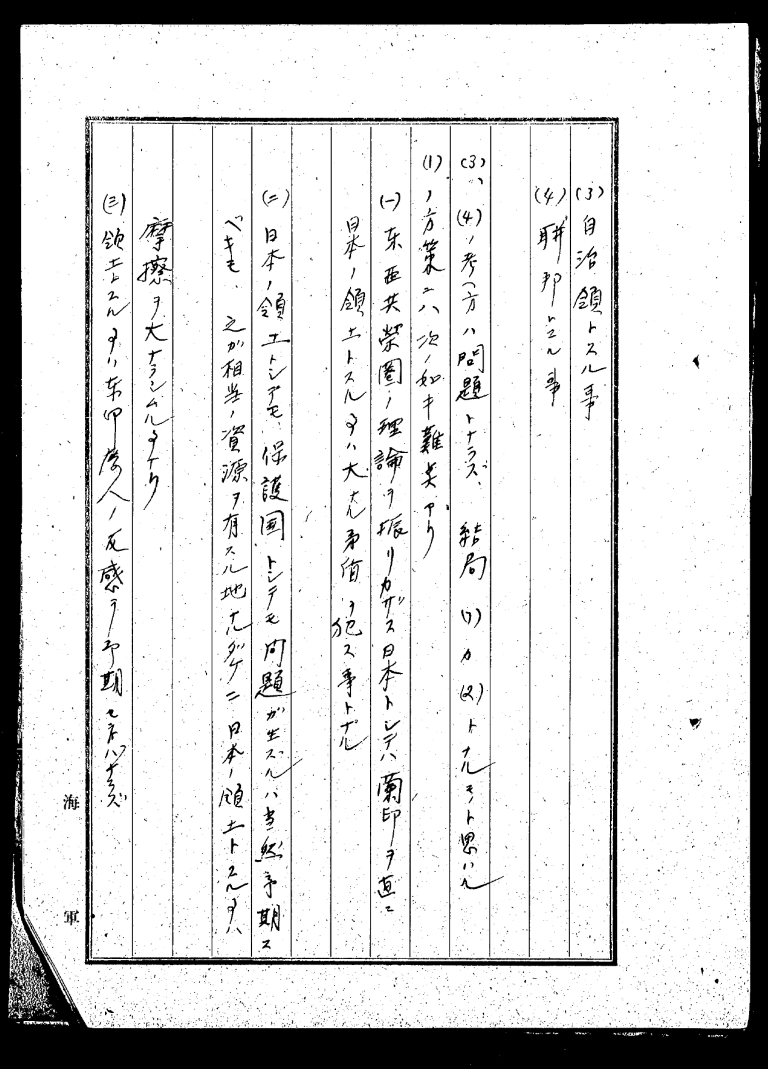 (3) 自治領トスル事
(4) 聯邦トスル事
(3)、(4)ノ考ヘ方ハ問題トナラズ、結局(1)カ(2)トナルモノト思ハル
(1)ノ方策ニハ次ノ如キ難点アリ
(一) 东亜共榮圏ノ理論ヲ振リカザス日本トシテハ蘭印ヲ直ニ
日本ノ領土トスル事ハ大ナル矛盾ヲ犯ス事トナル
(二) 日本ノ領土トシテモ、保護国トシテモ問題ガ生ズルハ当然予期ス
ベキモ、之ガ相当ノ資源ヲ有スル地ナルダケニ日本ノ領土トスル事ハ
摩擦ヲ大ナラシムル事トナリ
(三) 領土トスル事ハ东印度人ノ反感ヲ予期セネバナラズ
海軍